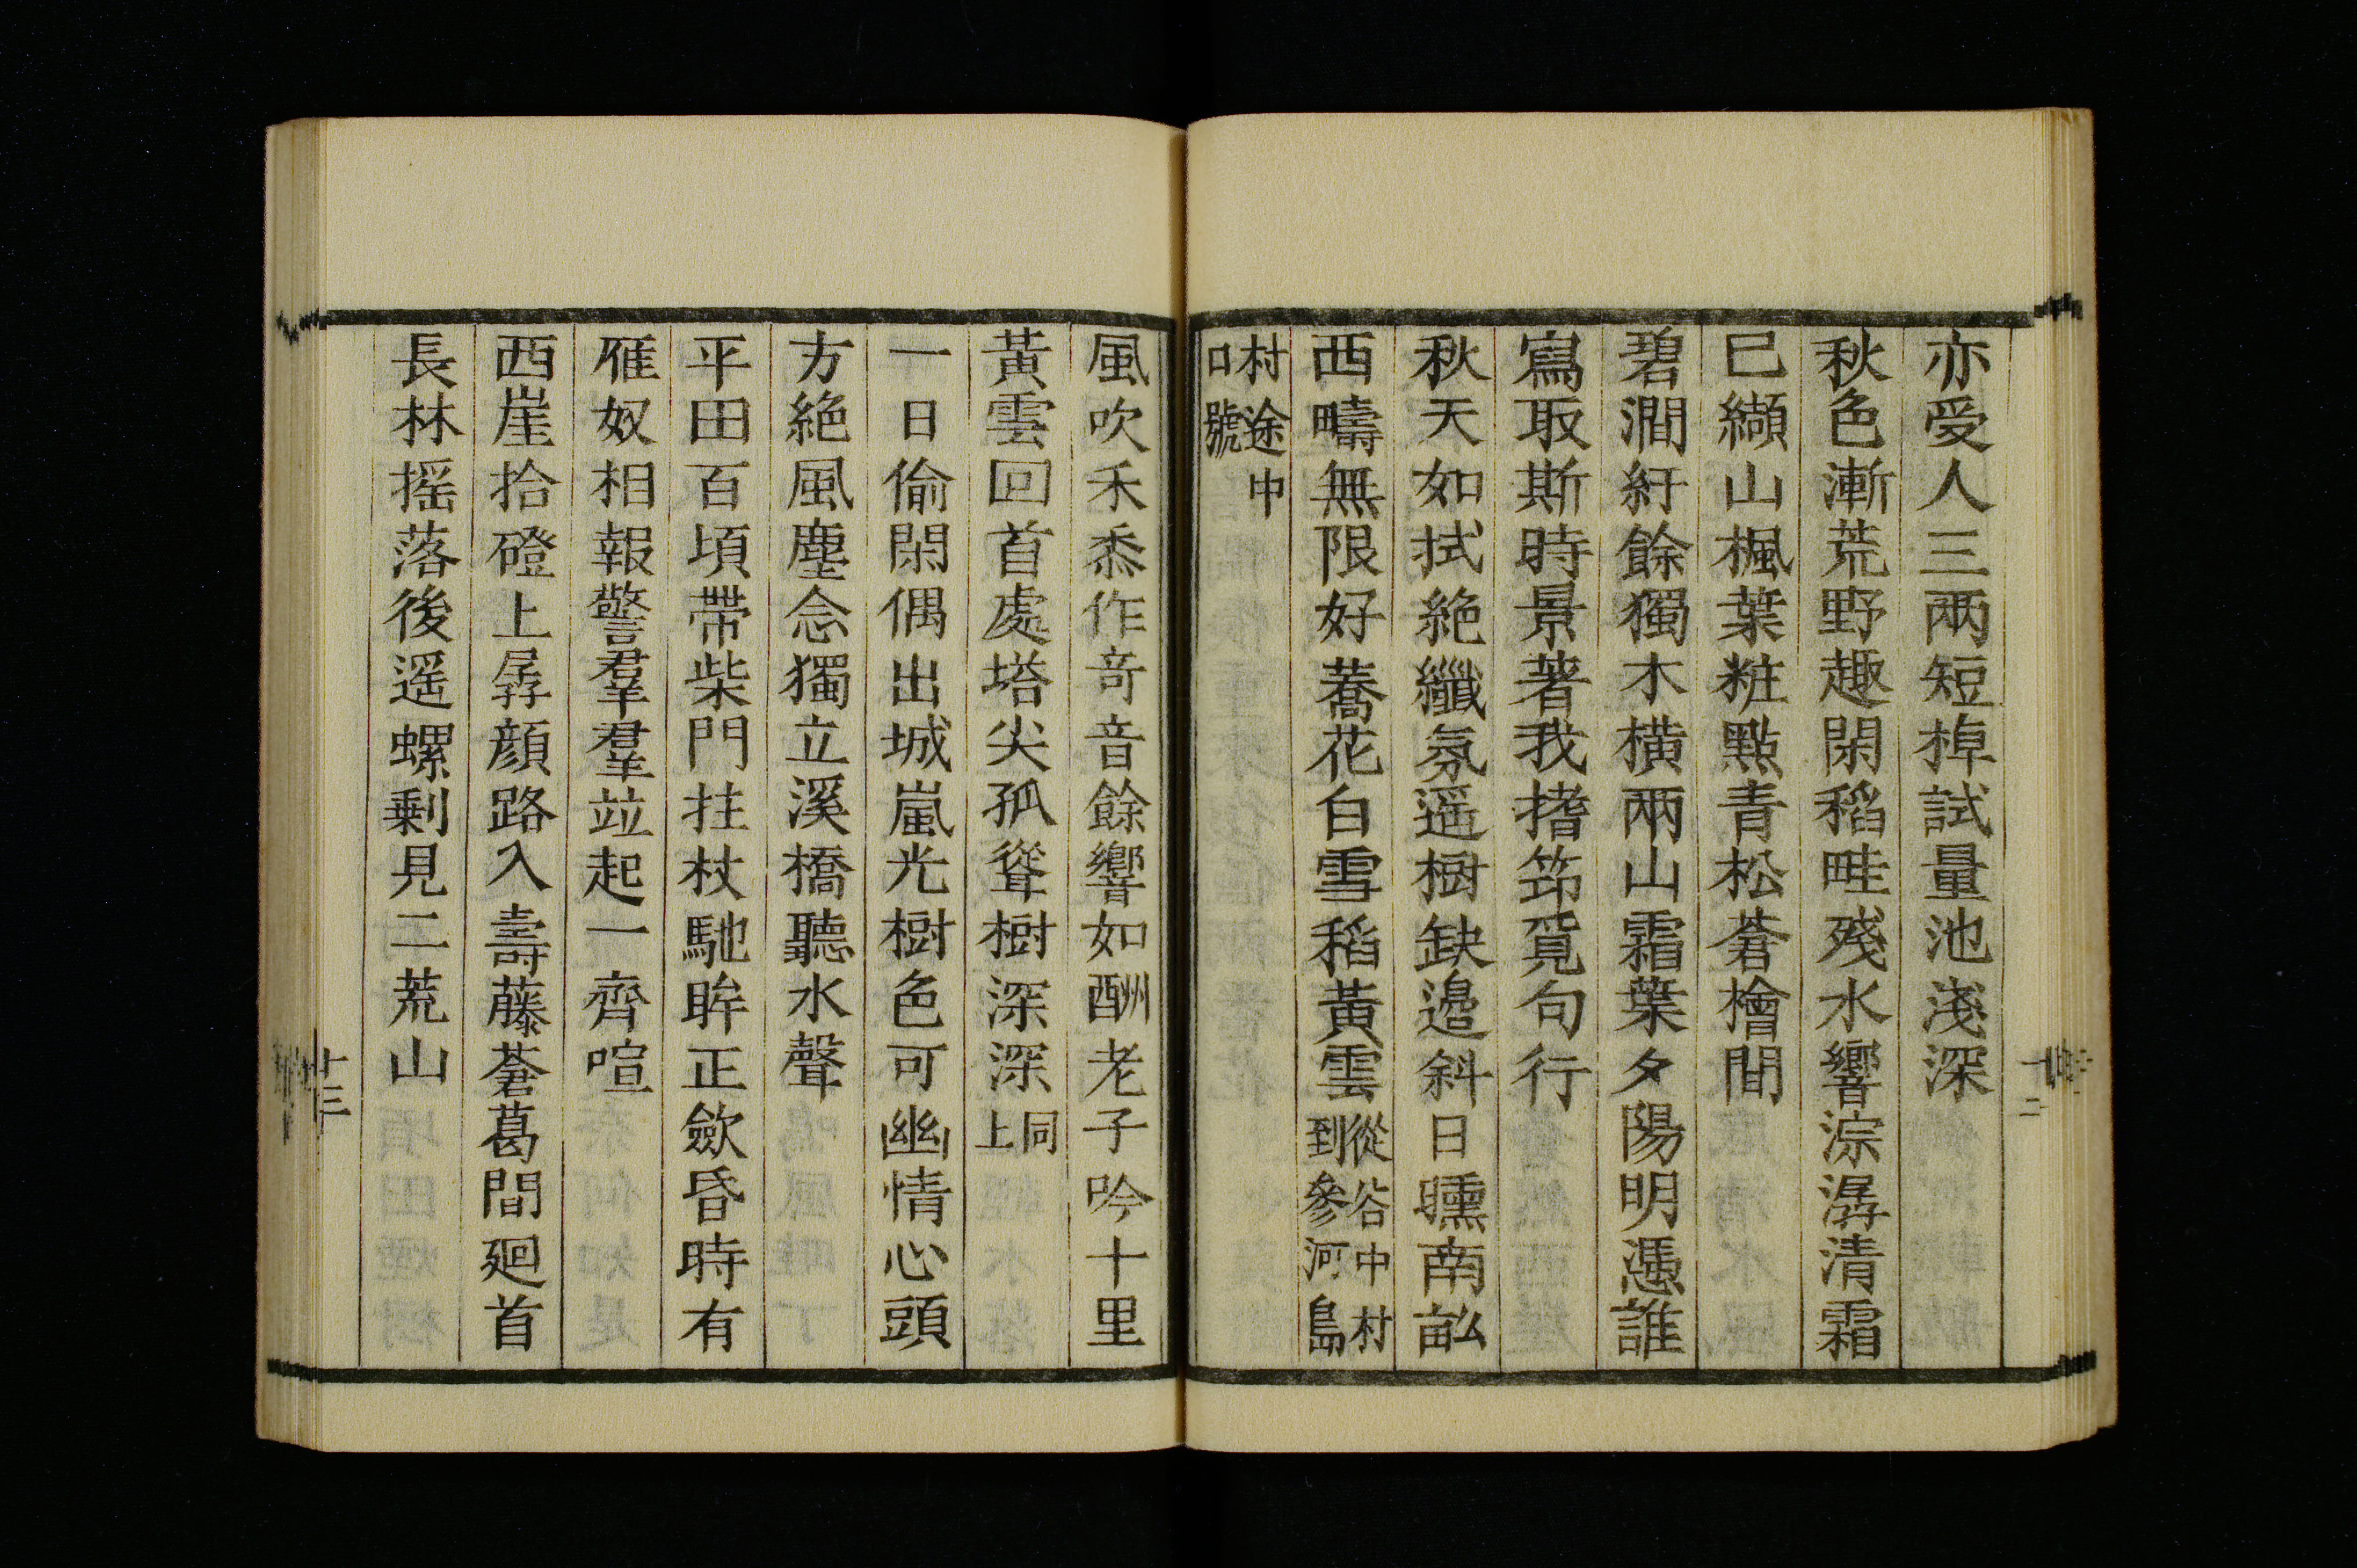 亦受人三兩短棹試量池淺深
秋色漸荒野趣閑稻畦殘水響淙潺清霜
已纈山楓葉粧點青松蒼檜間
碧澗紆餘獨木橫兩山霜葉夕陽明憑誰
寫取斯時景著我搘筇覓句行
秋天如拭絕纖氛遥樹缺邊斜日曛南畝
西疇無限好蕎花白雪稻黃雲從谷中村到參河島
村途中口號
風吹禾黍作竒音餘響如酬老子吟十里
黃雲回首處塔尖孤聳樹深深同上
一日偷閑偶出城嵐光樹色可幽情心頭
方絕風塵念獨立溪橋聽水聲
平田百頃帶柴門拄杖馳眸正歛昏時有
雁奴相報警羣羣竝起一齊喧
西崖拾磴上孱顏路入壽藤蒼葛間廻首
長林搖落後遥螺剩見二荒山
十二
十三